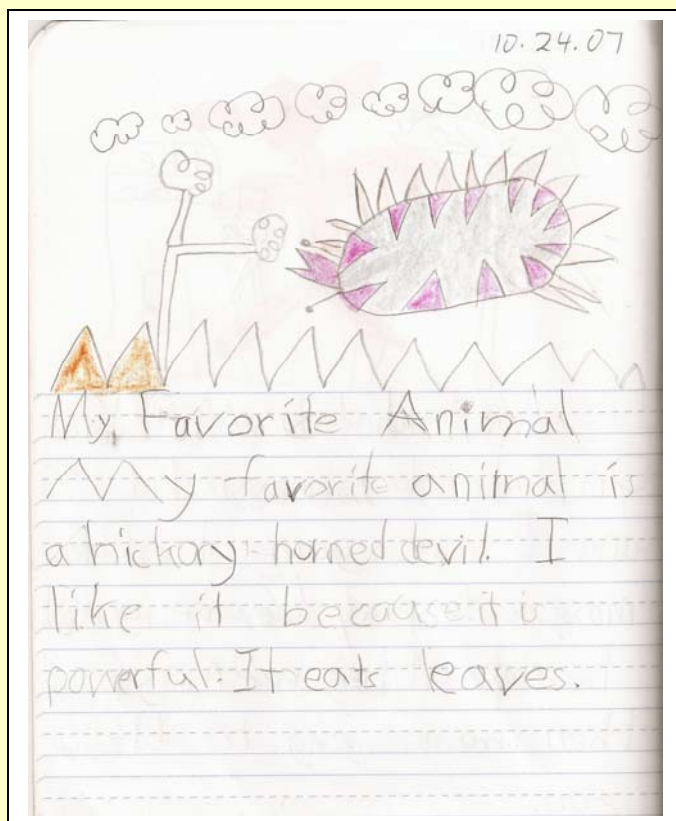 10.24.07
My Favorite Animal
My favorite animal is
a hickory horned devil. I
like it because it is
powerful. It eats leaves.